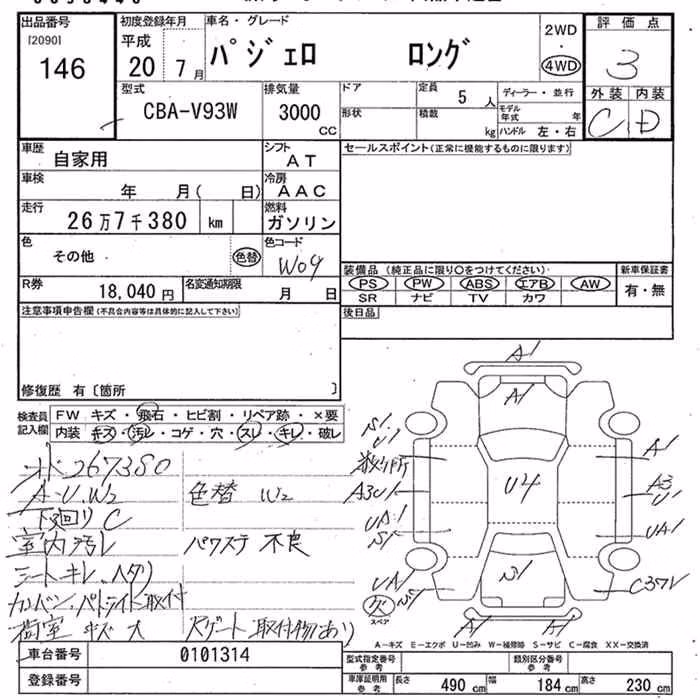 出品番号
[2090]
146
初度登録年月
平成
20 7月
車名・グレード
パジェロ ロング
2WD
・
4WD
評価点
3
外装 内装
C D
型式
CBA-V93W
排気量
3000
CC
ドア
定員
5人
ディーラー・並行
形状
積載
kg
モデル年式 年
ハンドル 左・右
車歴
自家用
シフト
AT
車検
年 月( 日)
冷房
AAC
走行
26万7千380 km
燃料
ガソリン
色
その他
色替
色コード
W09
R券
18,040円
名変通知期限
月 日
セールスポイント(正常に機能するものに限ります)
装備品 (純正品に限り○をつけてください)
PS PW ABS エアB AW
SR ナビ TV カワ
新車保証書
有・無
後日品
注意事項申告欄(不具合内容等は具体的に記入して下さい)
修復歴 有〔箇所 〕
検査員
記入欄
FW キズ・飛石・ヒビ割・リペア跡・×要
内装 キズ・汚レ・コゲ・穴・スレ・キレ・破レ
267380
A・U、W2 色替 W2
下廻り C
室内汚レ パワステ 不良
シートキレ、ヘタリ
カンバン、パトライト取付
荷室 キズ 大 Rゲート 取付物あり
A1
A1
S1・U1
A1
A3U1
U4
A3
U1
UA1
S1
UA1
S1
C3TV
欠
スペア
A1
A1
A-キズ E-エクボ U-凹み W-補修跡 S-サビ C-腐食 XX-交換済
車台番号
0101314
登録番号
型式指定番号
参考
類別区分番号
参考
車庫証明用
参考
長さ 490 cm
幅 184 cm
高さ 230 cm